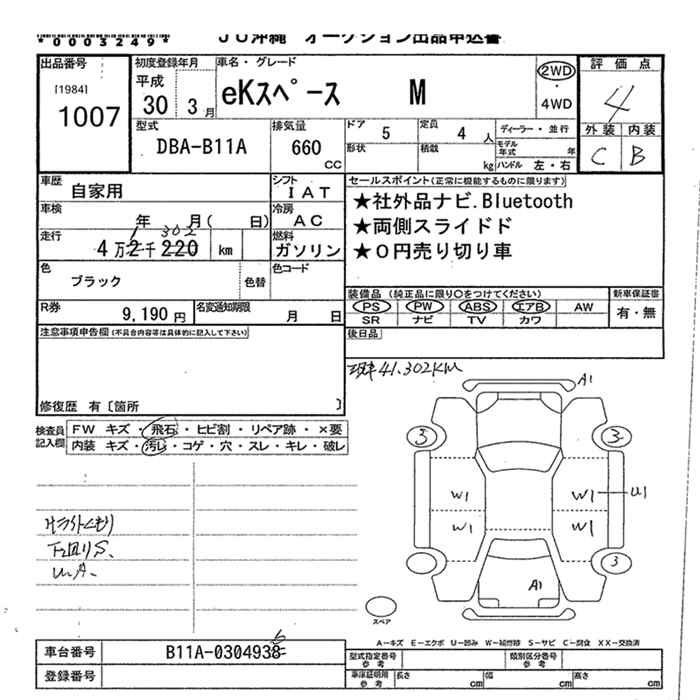 *0003249*
JU沖縄 オークション出品申込書
出品番号
[1984]
1007
初度登録年月
平成
30 3月
車名・グレード
eKスペース M
2WD
4WD
評価点
4
外装 内装
C B
型式
DBA-B11A
排気量
660
CC
ドア
5
定員
4人
ディーラー・並行
形状
積載
kg
モデル
年式
年
ハンドル 左・右
車歴
自家用
シフト
IAT
車検
年 月( 日)
冷房
AC
走行
4万2千220
1 302
km
燃料
ガソリン
色
ブラック
色替
色コード
R券
9,190円
名変通知期限
月 日
セールスポイント(正常に機能するものに限ります)
★社外品ナビ.Bluetooth
★両側スライドド
★0円売り切り車
装備品(純正品に限り○をつけてください)
PS PW ABS エアB AW
SR ナビ TV カワ
新車保証書
有・無
後日品
注意事項申告欄(不具合内容等は具体的に記入して下さい)
修復歴 有〔箇所 〕
現車41.302KM
検査員
記入欄
FW キズ・飛石・ヒビ割・リペア跡・×要
内装 キズ・汚レ・コゲ・穴・スレ・キレ・破レ
A1
3
3
W1
W1
U1
W1
W1
3
A1
スペア
下回りS、
A−キズ E−エクボ U−凹み W−補修跡 S−サビ C−腐食 XX−交換済
車台番号
B11A-0304938
6
登録番号
型式指定番号
参考
類別区分番号
参考
車庫証明用
参考
長さ
cm
幅
cm
高さ
cm